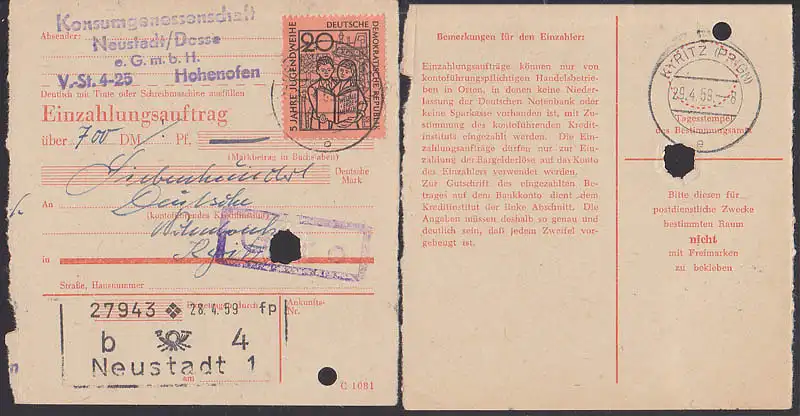 Konsumgenossenschaft
Absender:
Neustadt/Dosse
e.G.m.b.H.
V.-St. 4-25 Hohenofen
Deutlich mit Tinte oder Schreibmaschine ausfüllen
Einzahlungsauftrag
über 700 DM Pf.
(Marktbetrag in Buchstaben)
Siebenhundert
Deutsche
Mark
An Deutsche
(kontoführendes Kreditinstitut)
Notenbank
in Kyritz
Straße, Hausnummer
27943 28.4.59 fp
Ankunfts-
Nr.
b 4
Neustadt 1
am
C 1081
DEUTSCHE
20
DEMOKRATISCHE REPUBLIK
5 JAHRE JUGENDWEIHE
Bemerkungen für den Einzahler:
Einzahlungsaufträge können nur von
kontoführungspflichtigen Handelsbetrie-
ben in Orten, in denen keine Nieder-
lassung der Deutschen Notenbank oder
keine Sparkasse vorhanden ist, mit Zu-
stimmung des kontoführenden Kredit-
instituts eingezahlt werden. Die Ein-
zahlungsaufträge dürfen nur zur Ein-
zahlung der Bargelderlöse auf das Konto
des Einzahlers verwendet werden.
Zur Gutschrift des eingezahlten Be-
trages auf dem Bankkonto dient dem
Kreditinstitut der linke Abschnitt. Die
Angaben müssen deshalb so genau und
deutlich sein, daß jedem Zweifel vor-
gebeugt ist.
KYRITZ (PRIGN)
29.4.59.-8
Tagesstempel
des Bestimmungsamts
e
Bitte diesen für
postdienstliche Zwecke
bestimmten Raum
nicht
mit Freimarken
zu bekleben